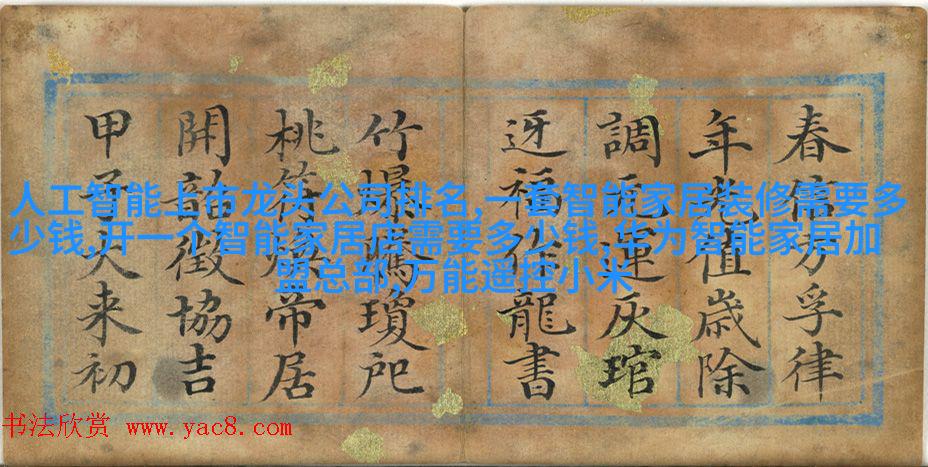 春信方孚律
年值歲除
調元運灰琯
迓福作龍書
竹爆騰瓊
桃符煥帝居
開韶徵協吉
甲子又來初
人工智能上市龙头公司排名,一套智能家居装修需要多
少钱,开一个智能家居店需要多少钱,华为智能家居加
盟总部,万能遥控小米
书法欣赏 www.yac8.com